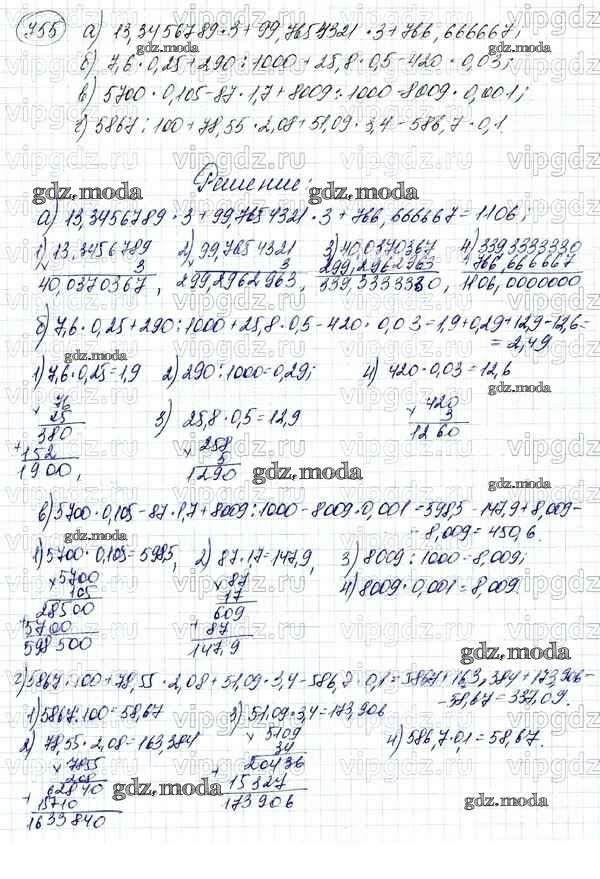 755 а) 13,3456789 · 3 + 99,7654321 · 3 + 766,666667;
б) 7,6 · 0,25 + 290 : 1000 + 25,8 · 0,5 - 420 · 0,03;
в) 5700 · 0,105 - 87 · 1,7 + 8009 : 1000 - 8009 · 0,001;
г) 5867 : 100 + 78,55 · 2,08 + 51,09 · 3,4 - 586,7 · 0,1.
Решение:
а) 13,3456789 · 3 + 99,7654321 · 3 + 766,666667 = 1106;
1) 13,3456789 2) 99,7654321 3) 40,0370367 4) 339,3333330
× 3 3 299,2962963 + 766,666667
40,0370367, 299,2962963, 339,3333330, 1106,0000000
б) 7,6 · 0,25 + 290 : 1000 + 25,8 · 0,5 - 420 · 0,03 = 1,9 + 0,29 + 12,9 - 12,6 =
= 2,49
1) 7,6 · 0,25 = 1,9 2) 290 : 1000 = 0,29; 4) 420 · 0,03 = 12,6
× 76 3) 25,8 · 0,5 = 12,9 × 420
25 × 258 3
380 5 1260
+ 152 1290
1900,
в) 5700 · 0,105 - 87 · 1,7 + 8009 : 1000 - 8009 · 0,001 = 598,5 - 147,9 + 8,009 -
- 8,009 = 450,6.
1) 5700 · 0,105 = 598,5 2) 87 · 1,7 = 147,9, 3) 8009 : 1000 = 8,009;
× 5700 × 87 4) 8009 · 0,001 = 8,009
105 17
28500 609
+ 5700 + 87
598500 147,9
г) 5867 : 100 + 78,55 · 2,08 + 51,09 · 3,4 - 586,7 · 0,1 = 58,67 + 163,384 + 173,906 -
- 58,67 = 337,09.
1) 5867 : 100 = 58,67 3) 51,09 · 3,4 = 173,906
2) 78,55 · 2,08 = 163,384 × 5109 4) 586,7 · 0,1 = 58,67.
× 7855 34
208 20436
62840 + 15327
+ 15710 173906
1633840
gdz.moda
vipgdz.ru